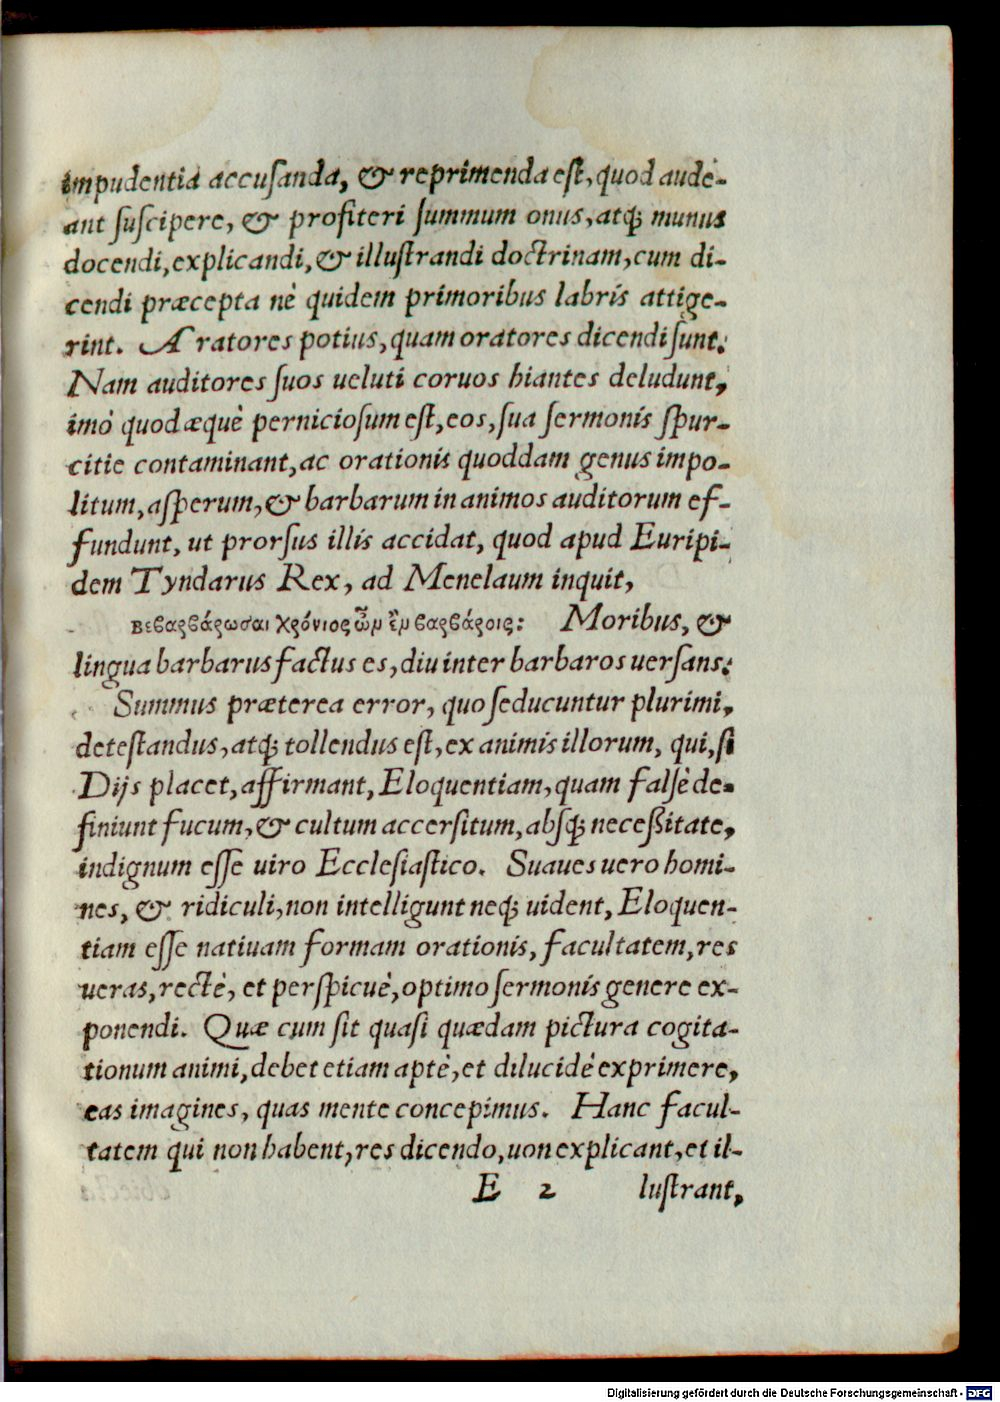 impudentia accusanda, & reprimenda est, quod aude-
ant suscipere, & profiteri summum onus, atq; munus
docendi, explicandi, & illustrandi doctrinam, cum di-
cendi præcepta nè quidem primoribus labris attige-
rint. Aratores potius, quam oratores dicendi sunt.
Nam auditores suos ueluti coruos hiantes deludunt,
imò quod æquè perniciosum est, eos, sua sermonis spur-
citie contaminant, ac orationis quoddam genus impo-
litum, asperum, & barbarum in animos auditorum ef-
fundunt, ut prorsus illis accidat, quod apud Euripi-
dem Tyndarus Rex, ad Menelaum inquit,
βεβαρβάρωσαι χρόνιος ὢμ ἒμ βαρβάροις: Moribus, &
lingua barbarus factus es, diu inter barbaros uersans:
Summus præterea error, quo seducuntur plurimi,
detestandus, atq; tollendus est, ex animis illorum, qui, si
Dijs placet, affirmant, Eloquentiam, quam falsè de-
finiunt fucum, & cultum accersitum, absq; neceßitate,
indignum esse uiro Ecclesiastico. Suaues uero homi-
nes, & ridiculi, non intelligunt neq; uident, Eloquen-
tiam esse natiuam formam orationis, facultatem, res
ueras, rectè, et perspicuè, optimo sermonis genere ex-
ponendi. Quæ cum sit quasi quædam pictura cogita-
tionum animi, debet etiam aptè, et dilucidè exprimere,
eas imagines, quas mente concepimus. Hanc facul-
tatem qui non habent, res dicendo, uon explicant, et il-
E 2 lustrant,
Digitalisierung gefördert durch die Deutsche Forschungsgemeinschaft - DFG